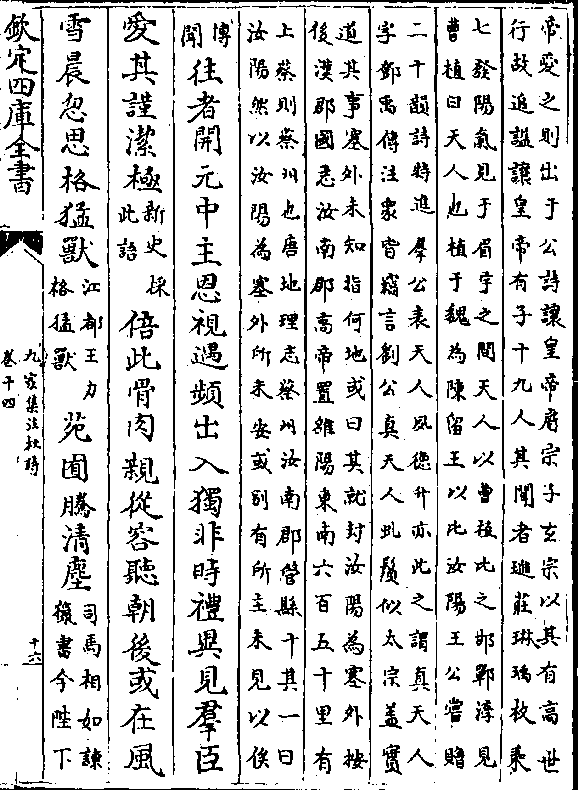 帝愛之則出于公詩讓皇帝府宗子玄宗以其有高世
行故追諡讓皇帝有子十九人其聞者璡莊琳瑀枚乘
七發陽氣見于眉宇之間天人以曹植比之邯鄲淳見
曹植曰天人也植于魏為陳留王以比汝陽王公嘗贈
二十韻詩特進羣公表天人夙徳升亦此之謂真天人
字鄧禹傳注衆皆竊言劉公真天人虬鬚似太宗蓋實
道其事塞外未知指何地或曰其就封汝陽為塞外按
後漢郡國志汝南郡高帝置雒陽東南六百五十里有
上蔡則蔡州也唐地理志蔡州汝南郡管縣十其一曰
汝陽然以汝陽為塞外所未安或别有所主未見以俟
博聞往者開元中主恩視遇頻出入獨非時禮異見羣臣
愛其謹潔極新史採此語倍此骨肉親從容聽朝後或在風
雪晨忽思格猛獸江都王力格猛獸苑囿騰清塵司馬相如諫獵書今陛下
欽定四庫全書
九家集注杜詩
卷十四
十六